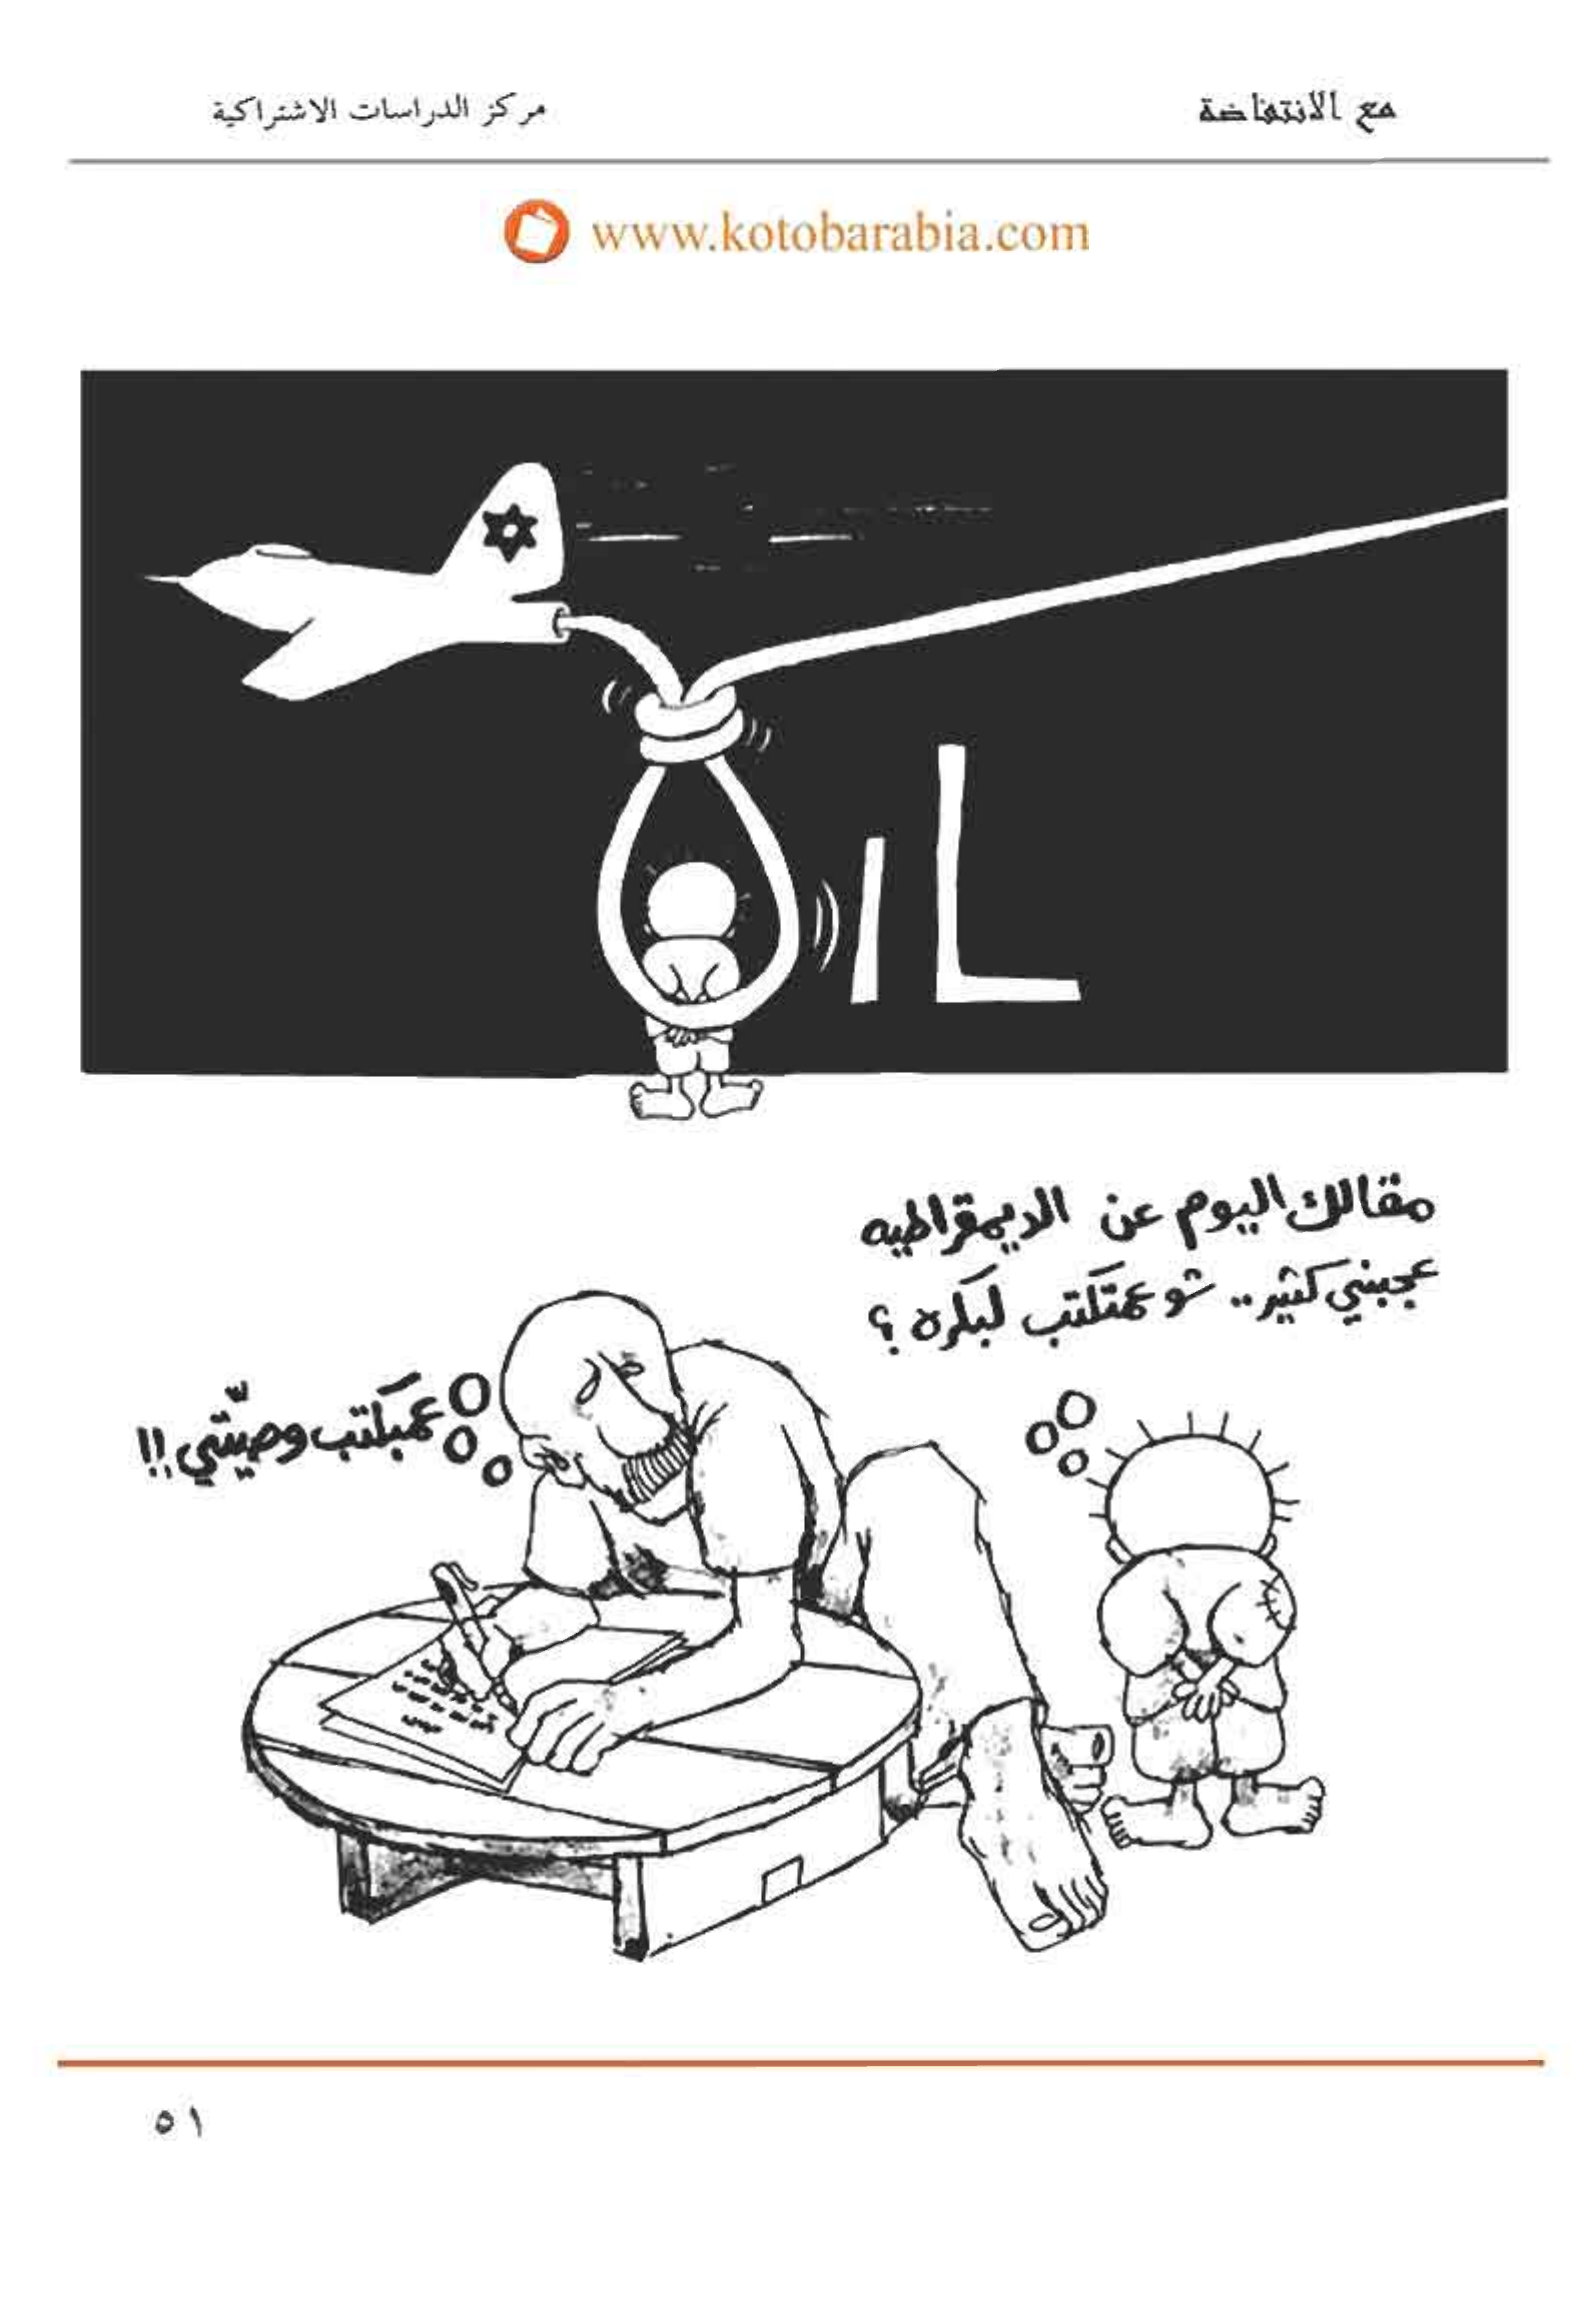 مع الانتفاضة
مركز الدراسات الاشتراكية
www.kotobarabia.com
OIL
مقالك اليوم عن الديمقراطيه
عجبني كثير.. شو عمتكتب لبكره ؟
عمبكتب وصيّتي !!
٥١